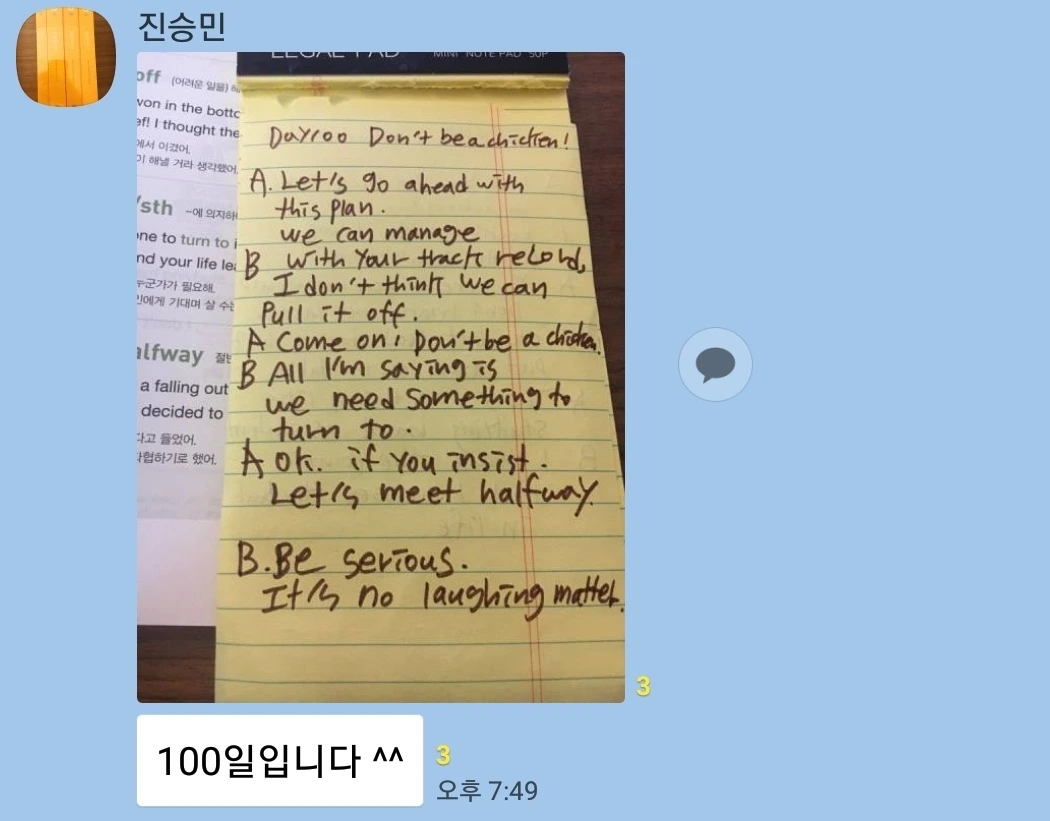 진승민
LEGAL PAD MINI NOTE PAD 50P
off (어려운 일을) 해
won in the botto
ef! I thought the
에서 이겼어.
이 해낼 거라 생각했어.
/sth ~에 의지하
one to turn to i
nd your life lea
누군가가 필요해.
인에게 기대며 살 수는
alfway 절반
a falling out
decided to
다고 들었어.
타협하기로 했어.
Day100 Don't be a chicken!
A. Let's go ahead with
this plan.
we can manage
B with your track record,
I don't think we can
Pull it off.
A Come on! Don't be a chicken.
B All I'm saying is
we need something to
turn to.
A OK. if you insist.
Let's meet halfway.
B. Be serious.
It's no laughing matter.
3
100일입니다 ^^
3
오후 7:49